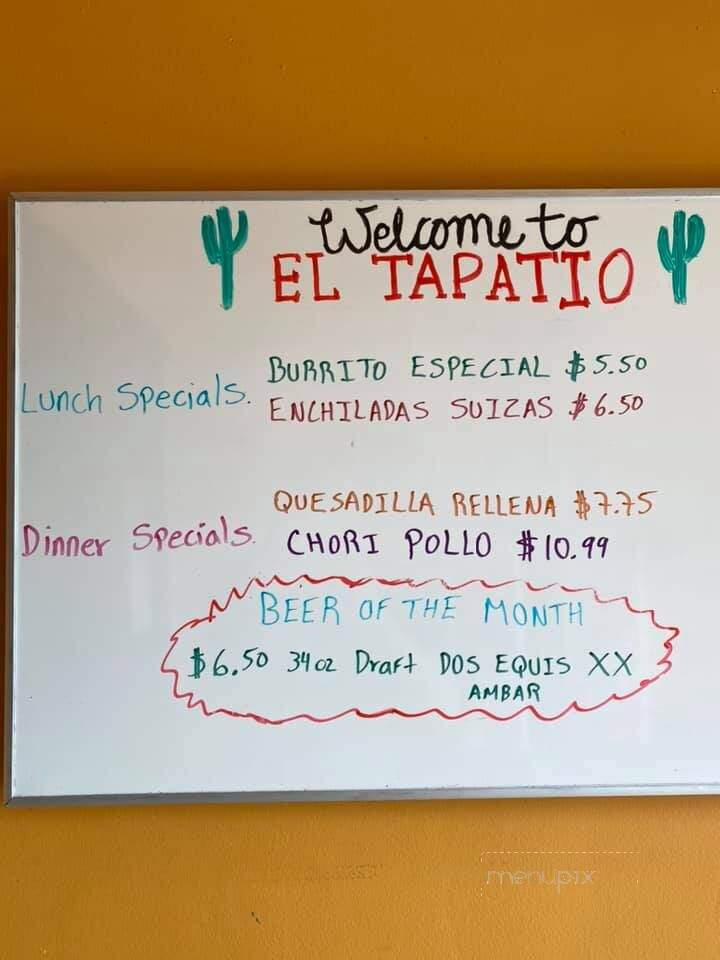 Welcome to
EL TAPATIO
Lunch Specials.
BURRITO ESPECIAL $5.50
ENCHILADAS SUIZAS $6.50
Dinner Specials.
QUESADILLA RELLENA $7.75
CHORI POLLO $10.99
BEER OF THE MONTH
$6.50 34oz Draft DOS EQUIS XX
AMBAR
menupix